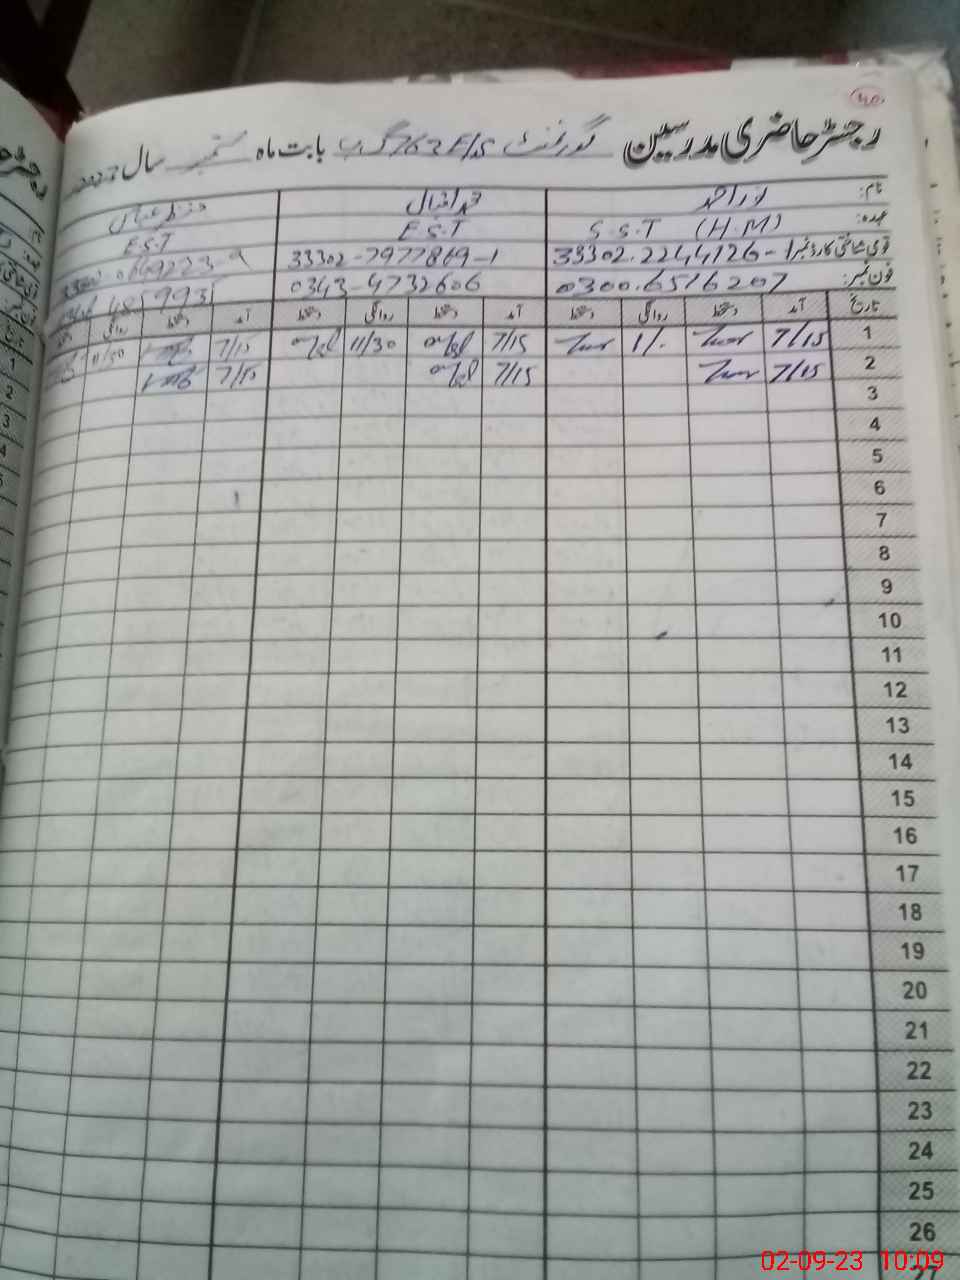 40
رجسٹر حاضری مدرسین گورنمنٹ E/S 762 گ ب بابت ماہ ستمبر سال 2023
نام: نور احمد محمد اقبال
عہدہ: S.S.T (H.M) E.S.T E.S.T
قومی شناختی کارڈ نمبر 33302.2244126-1 33302-7977869-1
فون نمبر: 0300.6516207 0343-4732606
تاریخ آمد دستخط روانگی دستخط آمد دستخط روانگی دستخط آمد دستخط روانگی دستخط
1 7/15 1/. 7/15 11/30 7/15 11/30
2 7/15 7/15 7/15
3
4
5
6
7
8
9
10
11
12
13
14
15
16
17
18
19
20
21
22
23
24
25
26
27
02-09-23 10:09